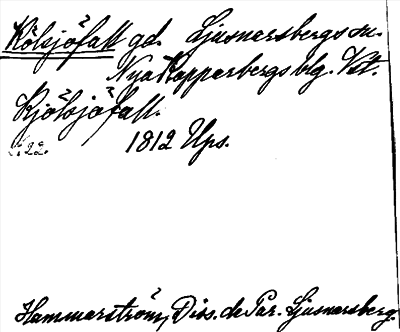 Kölsjöfall gd. Ljusnarsbergs sn.
Nya Kopparbergs blg. Vst.
Kjölsjöfall.
1812 Ups.
Hammarström, Diss. de Par. Ljusnarsberg.